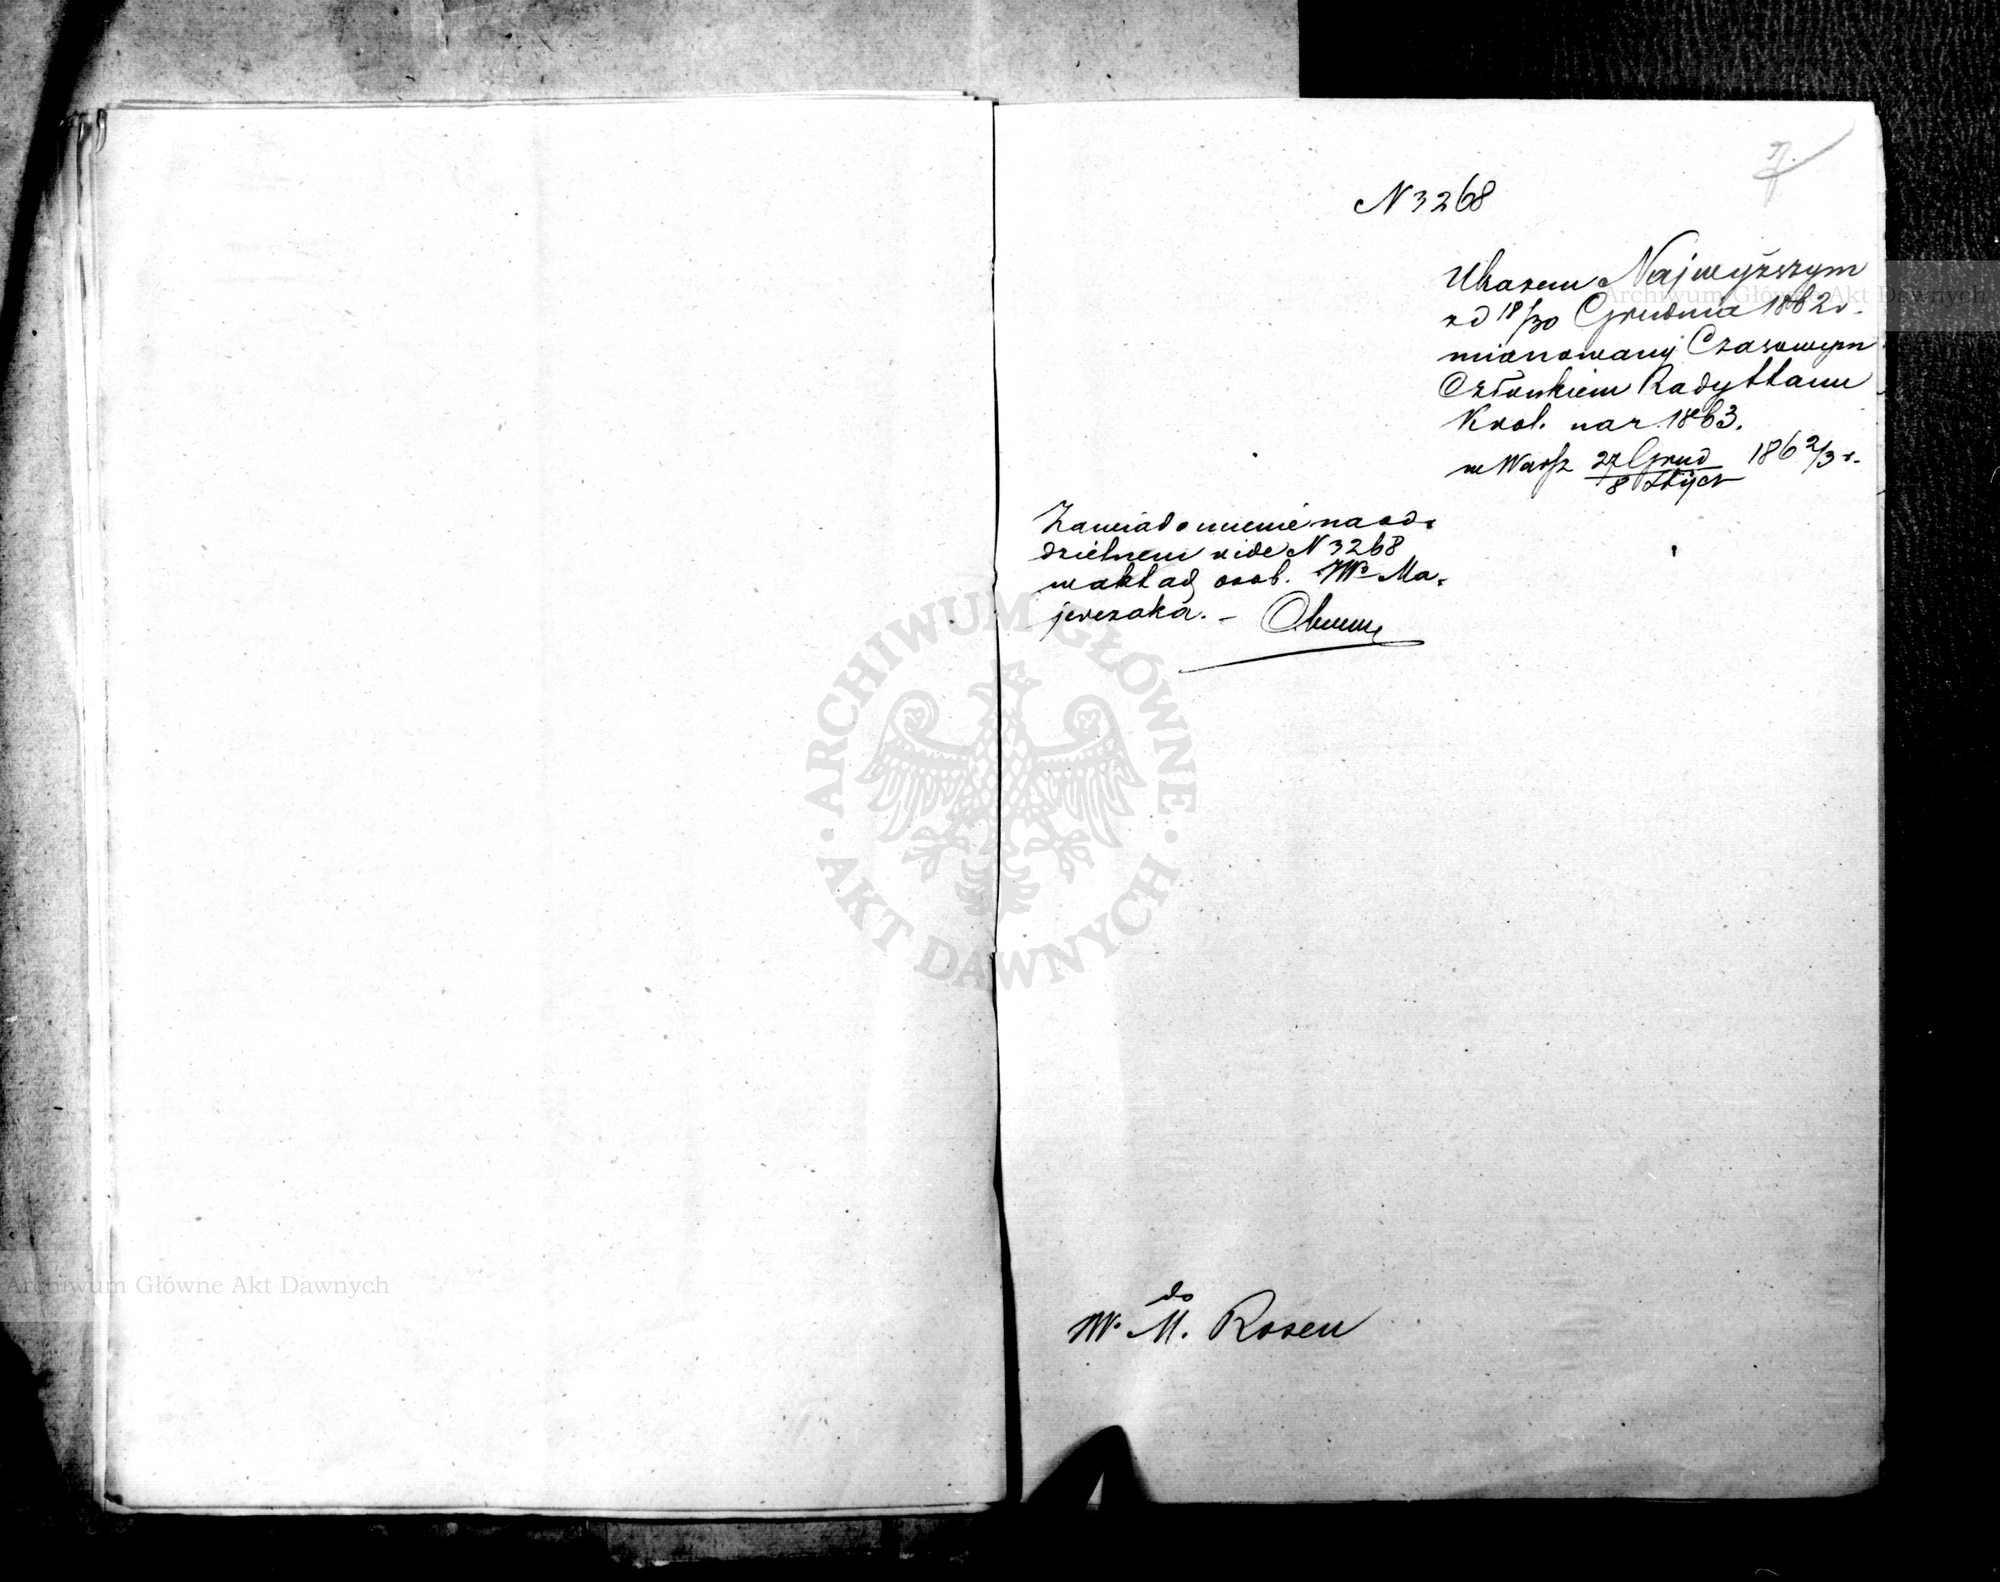 7.
N 3268
Ukazem Najwyższym
zd 18/30 Grudnia 1862 r.
mianowany Czasowym
Członkiem Rady Stanu
Król. na r. 1863.
w Warsz 27 Grud 1862/3 r.
8 Stycz
Zawiadomienie na od-
dzielnem vide N 3268
w aktach osob. W° Ma-
jerczaka. –
do
W. M. Rosen
ARCHIWUM GŁÓWNE
AKT DAWNYCH
Archiwum Główne Akt Dawnych
Archiwum Główne Akt Dawnych